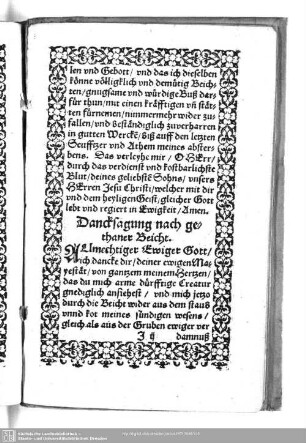 len vnd Gebott/ vnd das ich dieselben
könne völligklich vnd demütig Beich⸗
ten/gnugsame vnd würdige Buß dar⸗
für thun/mit einen kräfftigen vñ stäts⸗
ten fürnemen/nimmermehr wider zu⸗
fallen/vnd beständiglich zuverharren
in gutten Wercke/ biß auff den letzten
Seufftzer vnd Athem meines abster⸗
bens. Das verleyhe mir/ O HErr/
durch das verdienst vnd kostbarlichste
Blut/deines geliebste Sohns/ vnsers
HErren Jesu Christi/welcher mit dir
vnd dem heyligen Geist/gleicher Gott
lebt vnd regiert in Ewigkeit/Amen.
Dancksagung nach ge⸗
thaner Beicht.
ALmechtiger Ewiger Gott/
ich dancke dir/deiner ewigen Ma⸗
yestät/von gantzem meinem Hertzen/
das du mich arme dürfftige Creatur
gnediglich ansihest/ vnd mich jetzo
durch die Beicht wider aus dem staub
vnnd kot meines sündigen wesens/
gleich als aus der Gruben ewiger ver
J ij damnuß